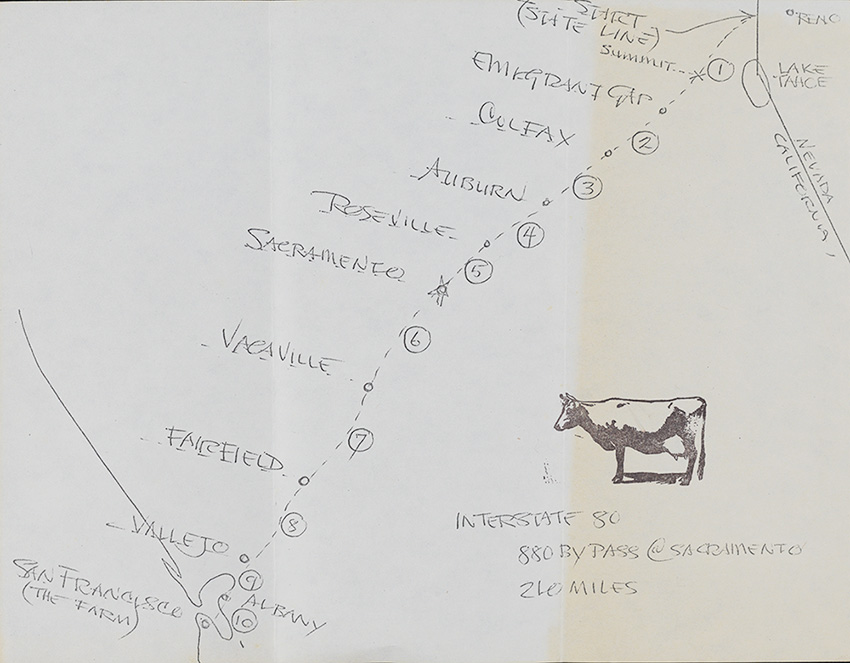 START
(STATE LINE)
RENO
SUMMIT
1
LAKE
TAHOE
EMIGRANT GAP
2
COLFAX
NEVADA
CALIFORNIA
3
AUBURN
ROSEVILLE
4
SACRAMENTO
5
6
VACAVILLE
7
FAIRFIELD
8
INTERSTATE 80
880 BYPASS @ SACRAMENTO
210 MILES
VALLEJO
9
SAN FRANCISCO
(THE FARM)
ALBANY
10